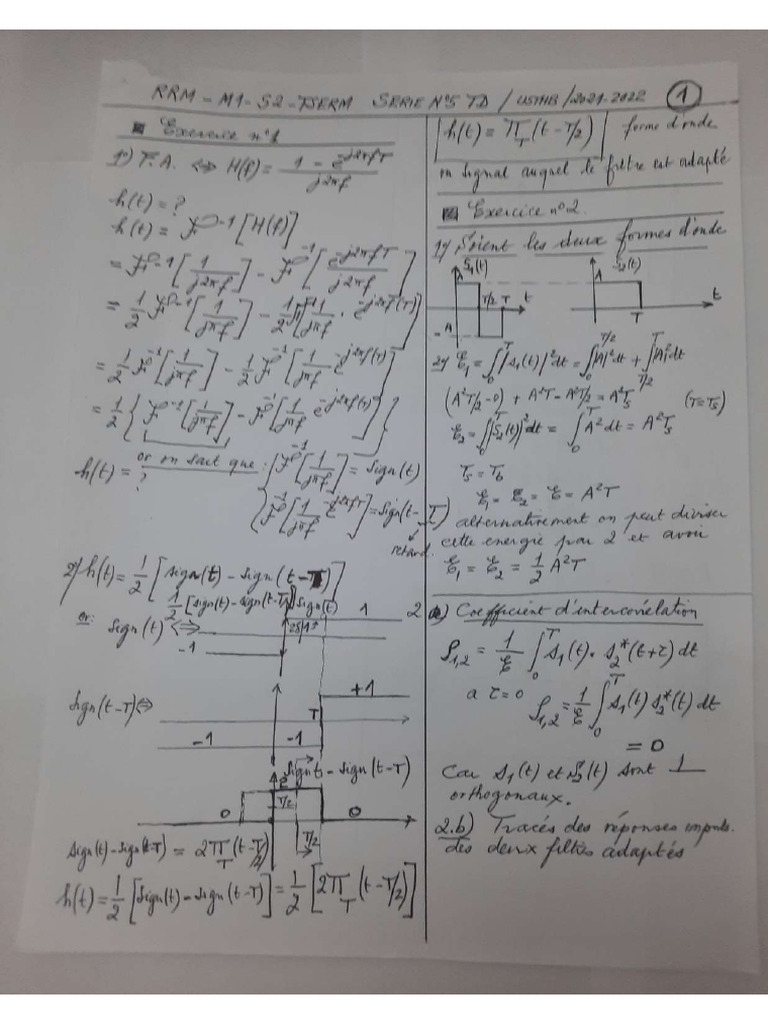 RRM - M1 - S2 - TSERM SERIE N°5 TD / USTHB / 2021-2022 1
Exercice n°1
1°) F.A. ⇔ H(f) = (1 - e^{-j2πfT}) / (j2πf)
h(t) = ?
h(t) = F^{-1}[H(f)]
= F^{-1}[1/(j2πf)] - F^{-1}[e^{-j2πfT}/(j2πf)]
= 1/2 F^{-1}[1/(jπf)] - 1/2 F^{-1}[1/(jπf) · e^{-j2πf(T)}]
= 1/2 F^{-1}[1/(jπf)] - 1/2 F^{-1}[1/(jπf) e^{-j2πf(T)}]
= 1/2 { F^{-1}[1/(jπf)] - F^{-1}[1/(jπf) e^{-j2πf(T)}] }
h(t) = ? or on sait que : { F^{-1}[1/(jπf)] = Sign(t)
{ F^{-1}[1/(jπf) e^{-j2πfT}] = Sign(t-T)
retard
2°) h(t) = 1/2 [sign(t) - sign(t-T)]
1/2 [sign(t) - sign(t-T)] Sign(t)
or: Sign(t) ⇔ 1 2
-1
Sign(t-T) ⇔ +1
T
-1 -1
Sign t - Sign(t-T)
2
0 T/2 0
T/2
Sign(t) - Sign(t-T) = 2Π_T(t-T/2)
h(t) = 1/2 [Sign(t) - Sign(t-T)] = 1/2 [2Π_T(t-T/2)]
h(t) = Π_T(t-T/2) forme d'onde
ou signal auquel le filtre est adapté
Exercice n°2.
1°) Soient les deux formes d'onde
S1(t) S2(t)
A T/2 T t A
-A T t
2°) E1 = ∫_0^T |s1(t)|² dt = ∫_0^{T/2} |A|² dt + ∫_{T/2}^T |A|² dt
(A²T/2 - 0) + A²T - A²T/2 = A²Ts (T = Ts)
E2 = ∫_0^T |S2(t)|² dt = ∫_0^T A² dt = A²Ts
Ts = Tb
E1 = E2 = E = A²T
alternativement on peut diviser
cette énergie par 2 et avoir
E1 = E2 = 1/2 A²T
2 a) Coefficient d'intercorrélation
ρ1,2 = 1/E ∫_0^T s1(t) · s2*(t+τ) dt
a τ=0 ρ1,2 = 1/E ∫_0^T s1(t) s2*(t) dt
= 0
Car s1(t) et S2(t) sont ⊥
orthogonaux.
2.b) Tracés des réponses impuls.
des deux filtes adaptés